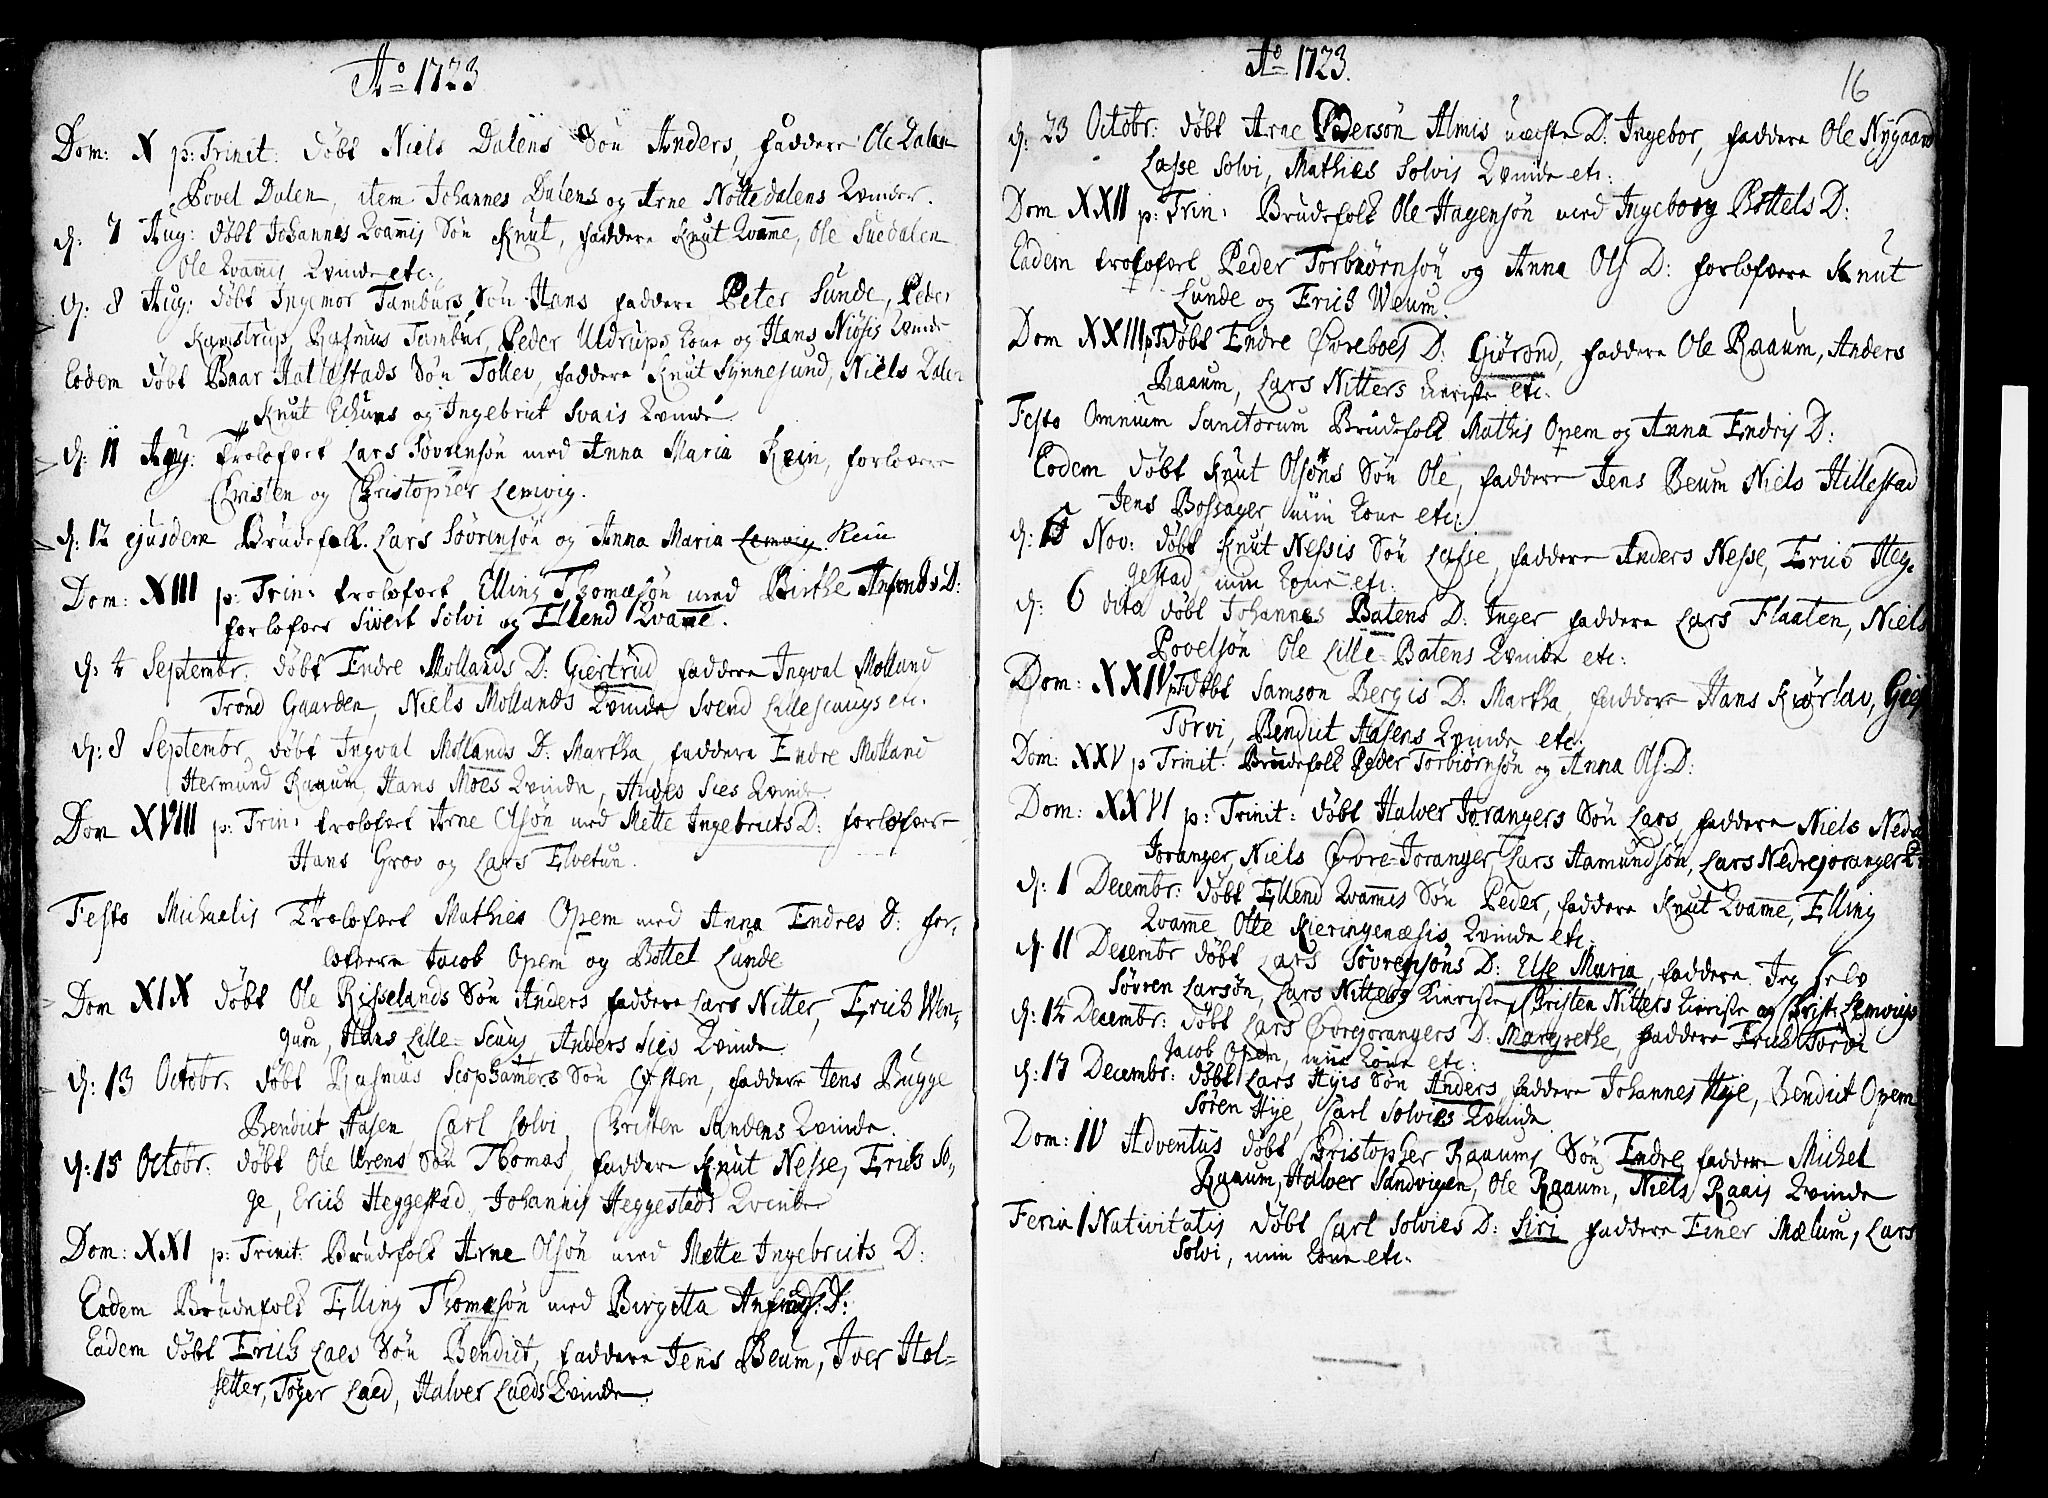 Ao 1723
Dom: X p: Trinit: døbt Niels Dalens Søn Anders, faddere Ole Dalen
Povel Dalen, item Johannes Dalens og Arne Nøttedalens Qvinder.
d: 7 Aug: døbt Johannes Qvamis Søn Knut, faddere Knut Qvame, Ole Suedalen
Ole Qvamis Qvinde etc:
d: 8 Aug: døbt Ingemor Tamburs Søn Hans faddere Peter Sunde, Peder
Kamstrup, Rasmus Tambur, Peder Uldrups Kone og Hans Niøsis Qvinde
Eodem døbt Baar Hallestads Søn Tollev, faddere Knut Synnesund, Niels Dalen
Knut Echuns og Ingebrut Svais Qvinde
d: 11 Aug: Trolofvet Lars Sørensøn med Anna Maria Rein, forlovere
Christen og Christopher Lemvig.
d: 12 ejusdem Brudefolk Lars Sørensøn og Anna Maria Lemvig Rein
Dom: XIII p: Trin: trolofvet Elling Thomæsøn med Birthe Anfinds D:
forlofver Sivert Solvi og Ellend Qvame.
d: 4 Septembr: døbt Endre Mollands D: Giertrud faddere Ingval Molland
Trond Gaarden, Niels Mollands Qvinde Svend Lillescougs etc.
d: 8 Septembr, døbt Ingval Mollands D: Martha, faddere Endre Molland
Hermund Raaum, Hans Moes Qvinde, Andes Sies Qvinde.
Dom XVIII p: Trin: trolofvet Arne Olsøn med Mette Ingebruts D: forlofvere
Hans Grov og Lars Elvetun.
Festo Michaelis Trolofvet Mathies Opem med Anna Endres D: for-
lofvere Jacob Opem og Bottel Lunde
Dom XIX døbt Ole Risselands Søn Anders faddere Lars Nitter, Erich Wen-
gum, Hans Lille-Scuug Anders Sies Qvinde
d: 13 Octobr: døbt Rasmus Scophamers Søn Øysten, faddere Jens Bugge
Bendict Aasen, Carl Solvi, Christen Sandens Qvinde.
d: 15 Octobr: døbt Ole Urens Søn Thomas, faddere Knut Nesse, Erich So-
ge, Erich Heggestad, Johannis Heggestads Qvinde
Dom: XXI p: Trinit: Brudefolk Arne Olsøn med Mette Ingebruts D:
Eodem Brudefolk Elling Thomæsøn med Birgitta Anfinds: D:
Eadem døbt Erich Laes Søn Bendict, faddere Jens Beum, Iver Hol=
setter, Tøger Laed, Halver Laeds Qvinde.
Ao 1723.
16
d: 23 Octobr: døbt Arne Pedersøn Almis D: Ingebor, faddere Ole Nygaard
Lasse Solvi, Mathies Solvis Qvinde etc:
Dom XXII p: Trin: Brudefolk Ole Hagensøn med Ingeborg Bottels D:
Eadem trolofvet Peder Torbiørnsøn og Anna Ols D: forlofvere Knut
Lunde og Erich Weum.
Dom XXIII p:T: døbt Endre Øvreboes D: Giørond, faddere Ole Raaum, Anders
Raaum, Lars Nitters Kieriste etc.
Festo Omnium Sanctorum Brudefolk Mathis Opem og Anna Endris D:
Eodem døbt Knut Olsøns Søn Ole, faddere Jens Beum Niels Hillestad
Jens Bossager min Kone etc:
d: 5 Nov: døbt Knut Nessis Søn Lasse, faddere Anders Nesse, Erich Heg-
gestad min Kone etc:
d: 6 dito døbt Johannes Batens D: Inger faddere Lars Flaaten, Niels
Povelsøn Ole Lille-Batens Qvinde etc:
Dom: XXIV p:T: døbt Samson Bergis D: Martha, faddere Hans Kiørlav,
Torvi, Bendict Aasens Qvinde etc:
Dom: XXV p Trinit: Brudefolk Peder Torbiørnsøn og Anna Ols D:
Dom: XXVI p: Trinit: døbt Halver Jorangers Søn Lars faddere Niels Nedre
Joranger, Niels Øvre-Joranger, Lars Aamundsøn, Lars Nedrejoranger
d: 1 Decembr: døbt Ellend Qvamis Søn Peder, faddere Knut Qvame, Elling
Qvame, Olle Kieringenæsis Qvinde etc:
d: 11 Decembr døbt Lars Søvrensøns D: Else Maria, faddere Jeg selv
Søvren Larsøn, Lars Nitters Kieriste, Christen Nitters Kieriste og Christ: Lemvigs
d: 14 Decembr: døbt Lars Øvrejorangers D: Margrethe, faddere Erich Torvi
Jacob Opem, min Kone etc:
d: 17 Decembr: døbt Lars Hyis Søn Anders, faddere Johannes Hye, Bendict Opem
Søren Hye, Carl Solvies Qvinde
Dom: IV Adventus døbt Christopher Raaums Søn Endre faddere Michel
Raaum, Halver Sandvigen, Ole Raaum, Niels Raais Qvinde
Feria 1 Nativitatis døbt Carl Solvies D: Siri faddere Einer Mælum, Lars
Solvi, min Kone etc.